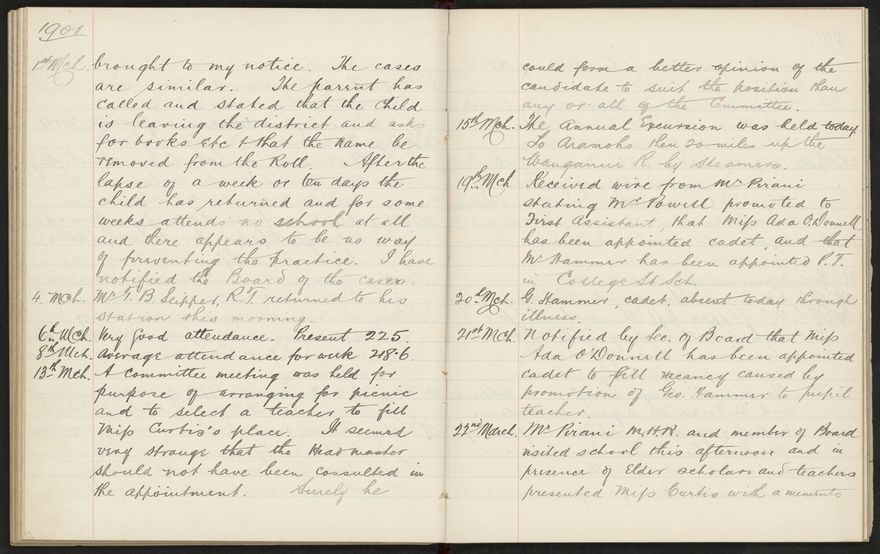 1901
1st Mch. brought to my notice. The cases
are similar. The parent has
called and stated that the child
is leaving the district and asks
for books etc & that the name be
removed from the Roll. After the
lapse of a week or ten days the
child has returned and for some
weeks attends no school at all
and there appears to be no way
of preventing the practice. I have
notified the Board of the cases.
4. Mch. Mr B Supper, R.T. returned to his
station this morning.
6th Mch. Very good attendance. Present 225.
8th Mch. Average attendance for week 218.6.
13th Mch. A Committee meeting was held for
purpose of arranging for picnic
and to select a teacher to fill
Miss Curtis's place. It seemed
very strange that the Headmaster
should not have been consulted in
the appointment. Surely he
could form a better opinion of the
candidate to suit the position than
any or all of the Committee.
15th Mch. The Annual Excursion was held today.
To Aramoho then 20 miles up the
Wanganui R. by Steamers.
19th Mch Received wire from Mr Pirani
stating Mr Powell promoted to
First Assistant, that Miss Ada O'Donnell
has been appointed cadet, and that
Mr Hammer has been appointed P.T.
in College St Sch.
20th Mch. G. Hammer, cadet, absent today through
illness.
21st Mch. Notified by Sec. of Board that Miss
Ada O'Donnell has been appointed
cadet to fill vacancy caused by
promotion of Geo. Hammer to pupil
teacher.
22nd March. Mr Pirani M.H.R. and member of Board
visited school this afternoon and in
presence of Elder scholars and teachers
presented Miss Curtis with a memento